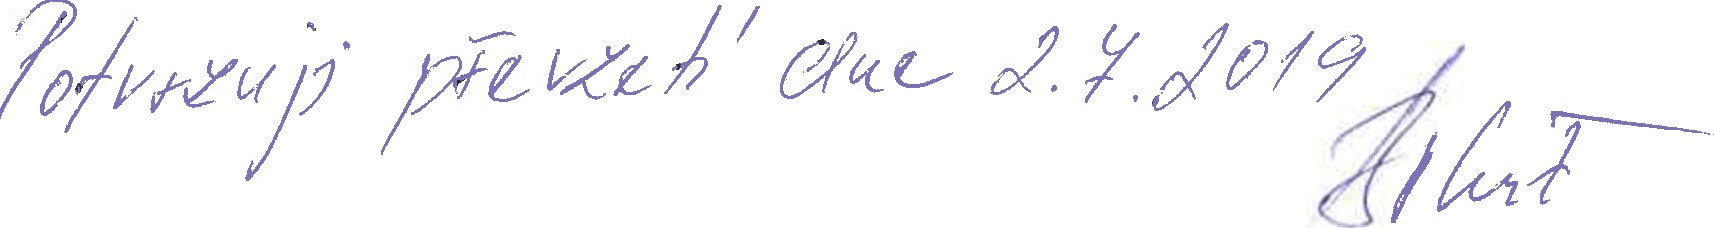 Potvrzuji převzetí dne 2.7.2019